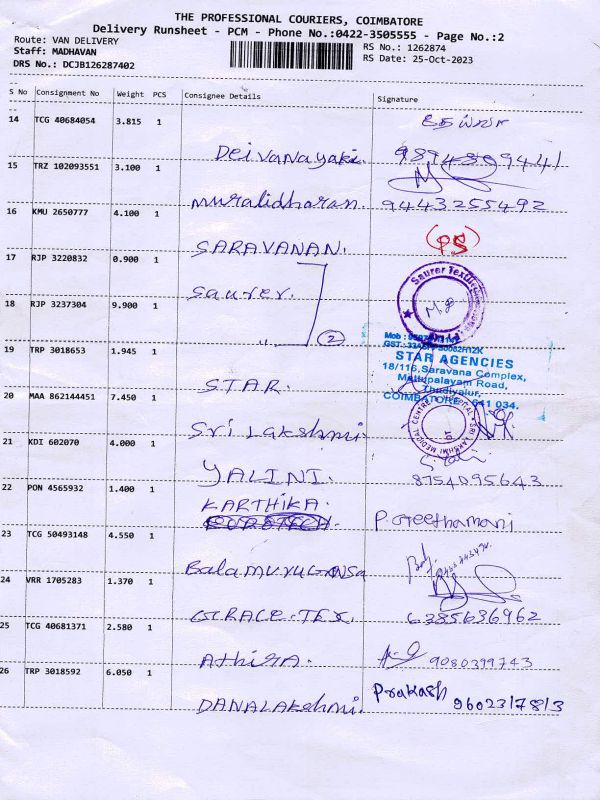 THE PROFESSIONAL COURIERS, COIMBATORE
Delivery Runsheet - PCM - Phone No.:0422-3505555 - Page No.:2
Route: VAN DELIVERY
Staff: MADHAVAN
DRS No.: DCJB126287402
RS No.: 1262874
RS Date: 25-Oct-2023
S No Consignment No Weight PCS Consignee Details Signature
14 TCG 40684054 3.815 1
Deivanayaki. 9894809441
15 TRZ 102093551 3.100 1
Muralidharan. 9443255492
16 KMU 2650777 4.100 1
SARAVANAN. (PS)
17 RJP 3220832 0.900 1
Saurer. Saurer Textile
18 RJP 3237304 9.900 1
" 2
19 TRP 3018653 1.945 1
STAR. STAR AGENCIES
18/116, Saravana Complex,
Mettupalayam Road,
Thudiyalur,
COIMBATORE - 641 034.
20 MAA 862144451 7.450 1
Sri Lakshmi SRI LAKSHMI MEDICAL CENTRE
21 KDI 602070 4.000 1
YALINI. 8754095643
22 PON 4565932 1.400 1
KARTHIKA. P. Geethamani
23 TCG 50493148 4.550 1
Balamurugansa
24 VRR 1705283 1.370 1
GRACE-TEX. 6385636962
25 TCG 40681371 2.580 1
Athira. 9080399743
26 TRP 3018592 6.050 1
DANALAKshmi. Prakash 9602317813